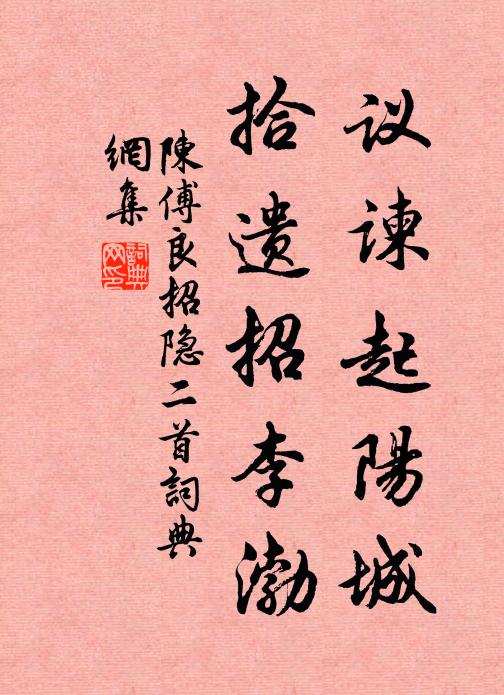 议谏起陽城
拾遗招李渤
陳傅良招隐二首詞典
網集
詞典
网印